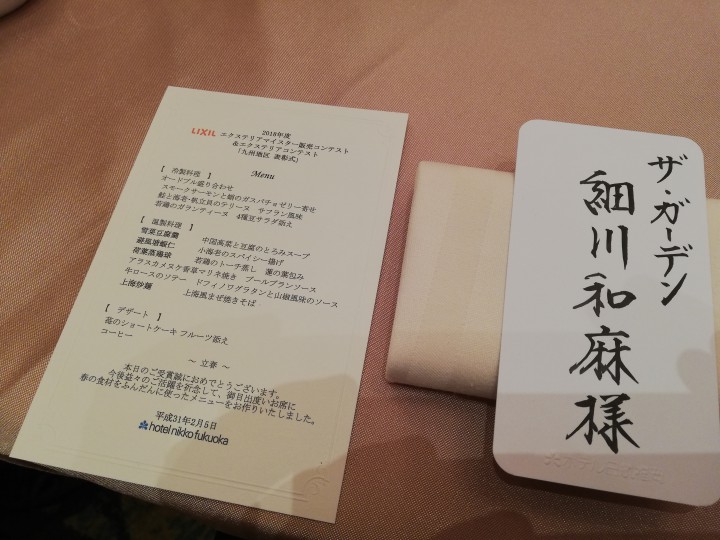 LIXIL
2018年度
エクステリアマイスター販売コンテスト
&エクステリアコンテスト
「九州地区 表彰式」
Menu
【 冷製料理 】
オードブル盛り合わせ
スモークサーモンと蛸のガスパチョゼリー寄せ
鮭と海老・帆立貝のテリーヌ サフラン風味
若鶏のガランティーヌ 4種豆サラダ添え
【 温製料理 】
雪菜豆腐羹 中国高菜と豆腐のとろみスープ
避風塘蝦仁 小海老のスパイシー揚げ
荷葉蒸鶏球 若鶏のトーチ蒸し 蓮の葉包み
アラスカメヌケ香草マリネ焼き ブールブランソース
牛ロースのソテー ドフィノワグラタンと山椒風味のソース
上海炒麺 上海風まぜ焼きそば
【 デザート 】
苺のショートケーキ フルーツ添え
コーヒー
～ 立春 ～
本日のご受賞誠におめでとうございます。
今後益々のご活躍を祈念して、御目出度いお席に
春の食材をふんだんに使ったメニューをお作りいたしました。
平成31年2月5日
hotel nikko fukuoka
ザ・ガーデン
細川和麻様